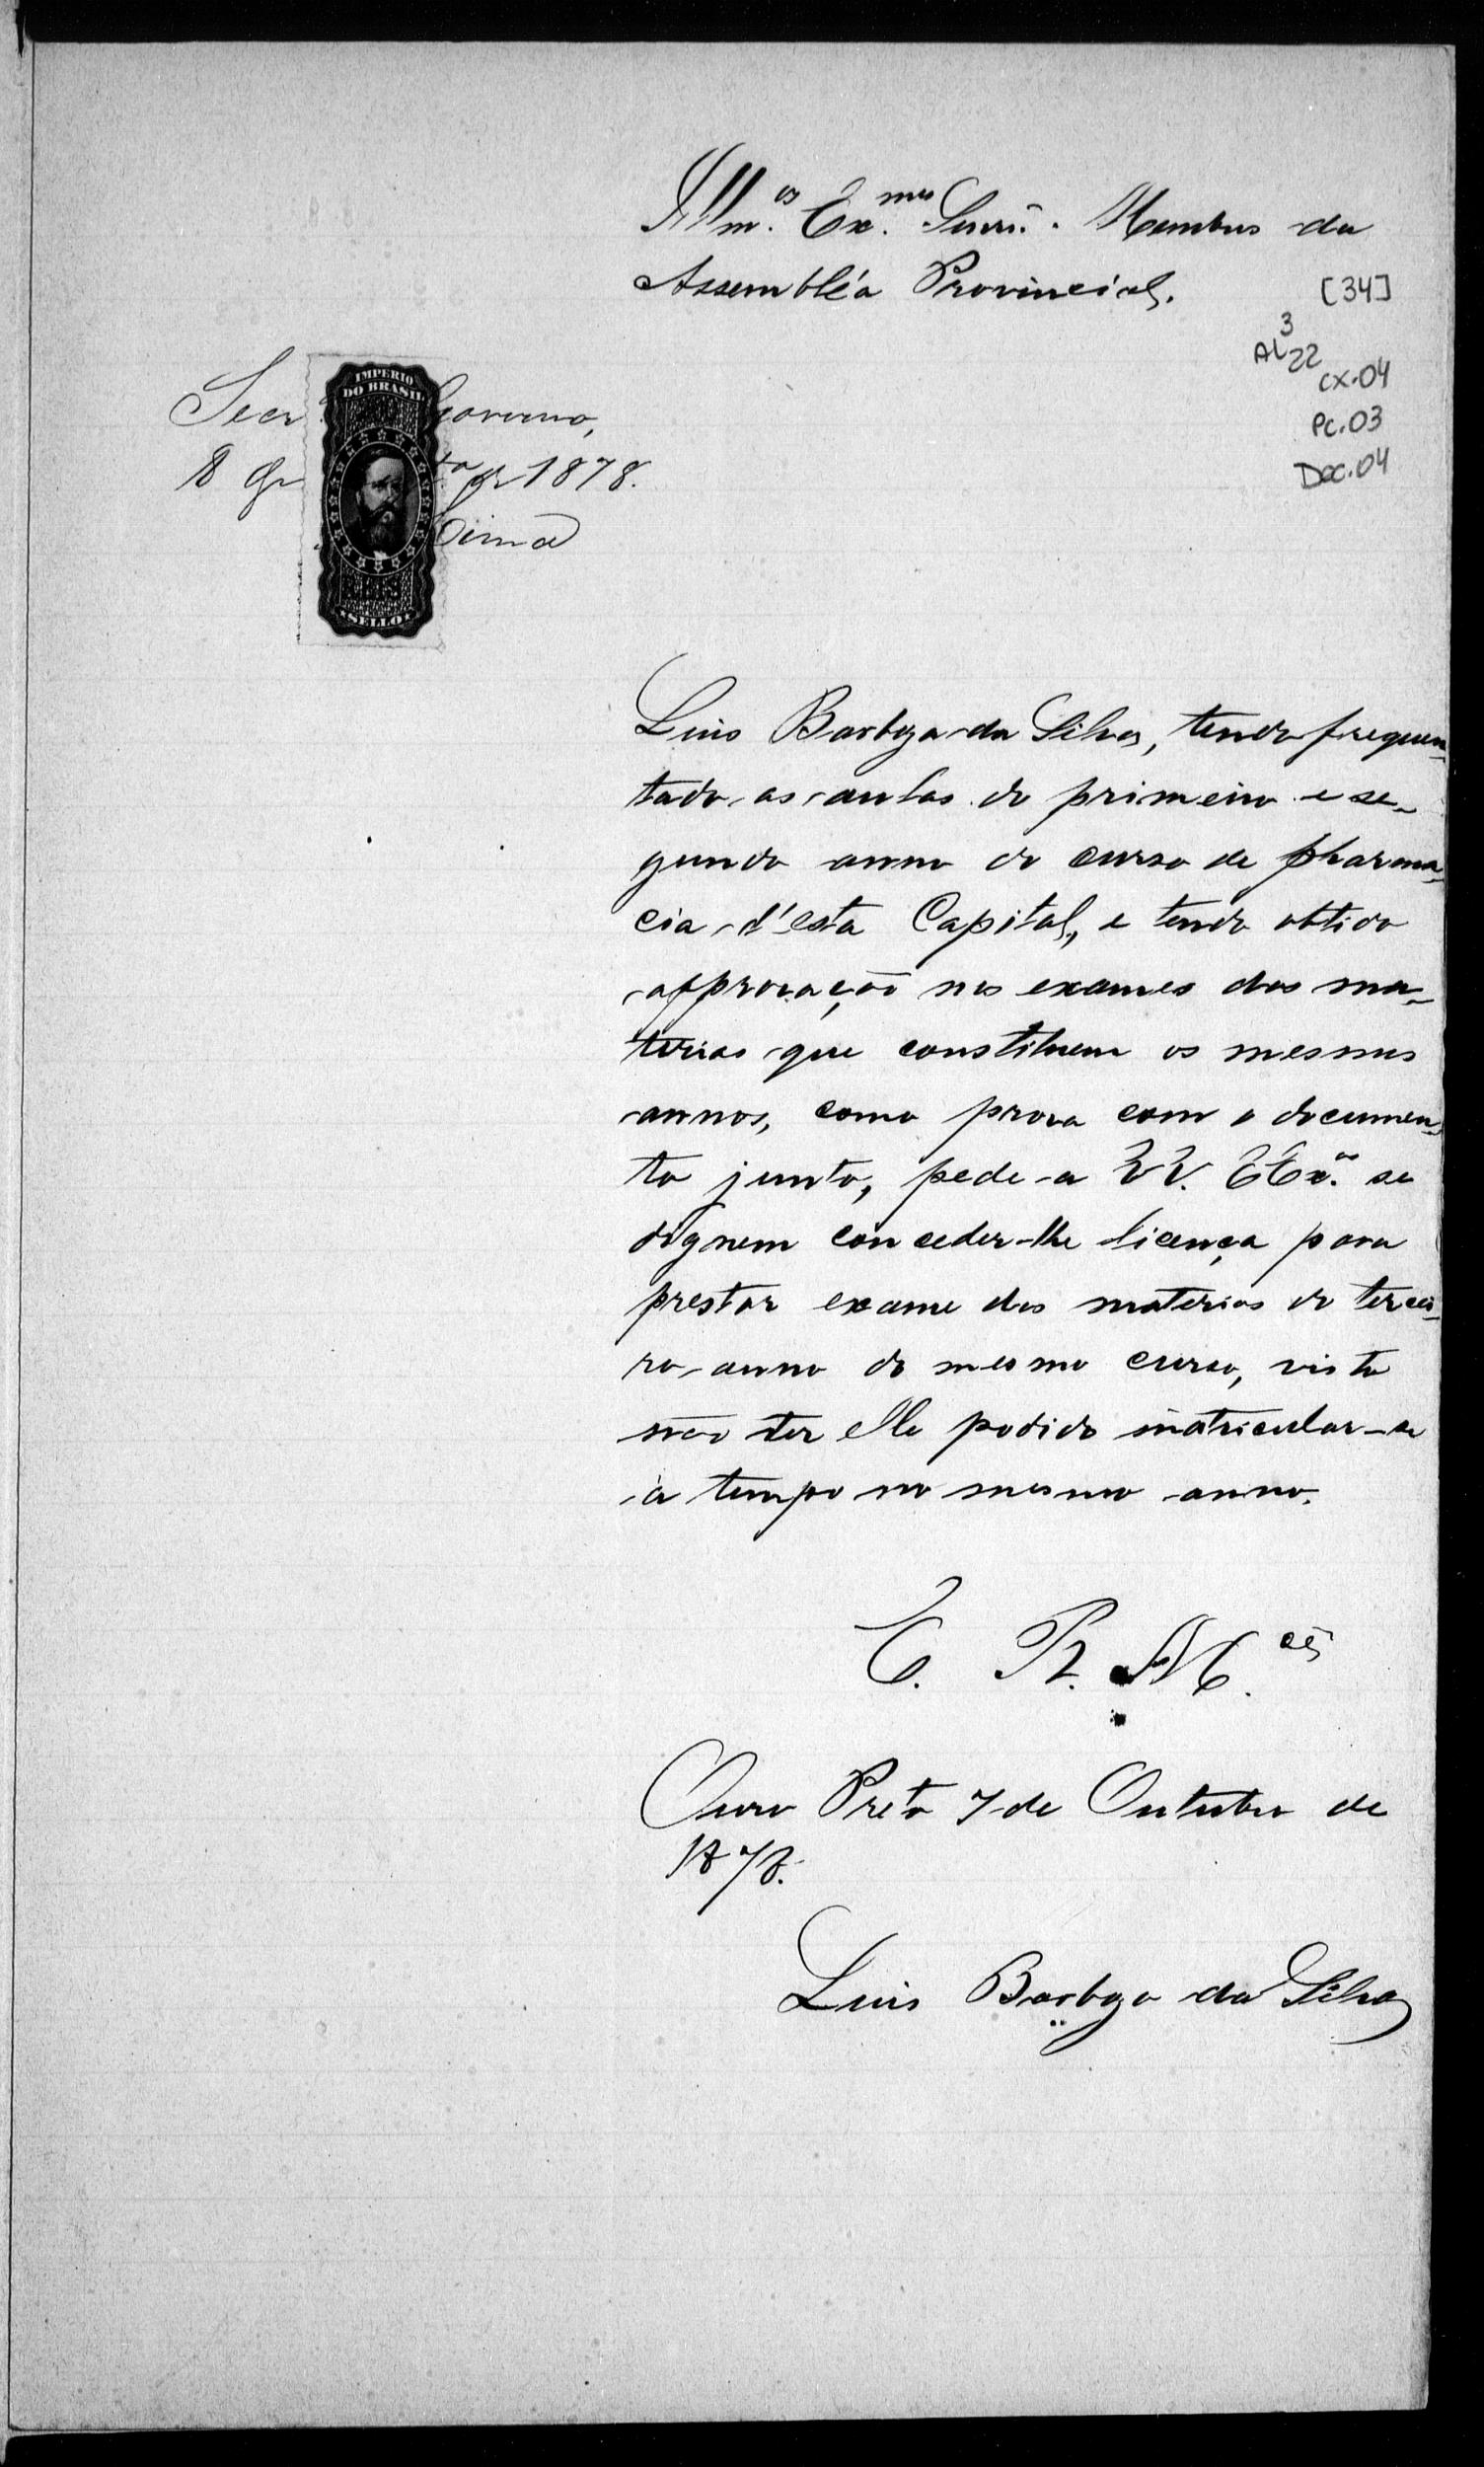 Illm.os Ex.mos Senr.s Membros da
Assembléa Provincial.
[34]
AL 3
22
cx.04
Pc.03
Doc.04
IMPERIO
DO BRASIL
Secr Governo,
8 de to de 1878.
SELLO
Luis Barboza da Silva, tendo frequen-
tado as aulas do primeiro e se-
gundo anno do curso de pharma-
cia d'esta Capital, e tendo obtido
approvação nos exames das ma-
terias que constituem os mesmos
annos, como prova com o documen-
to junto, pede a VV. EEx.as se
dignem conceder-lhe licença para
prestar exame das materias do tercei-
ro anno do mesmo curso, visto
não ter elle podido matricular-se
á tempo no mesmo anno.
E. R. M.cê
Ouro Preto 7 de Outubro de
1878.
Luis Barboza da Silva